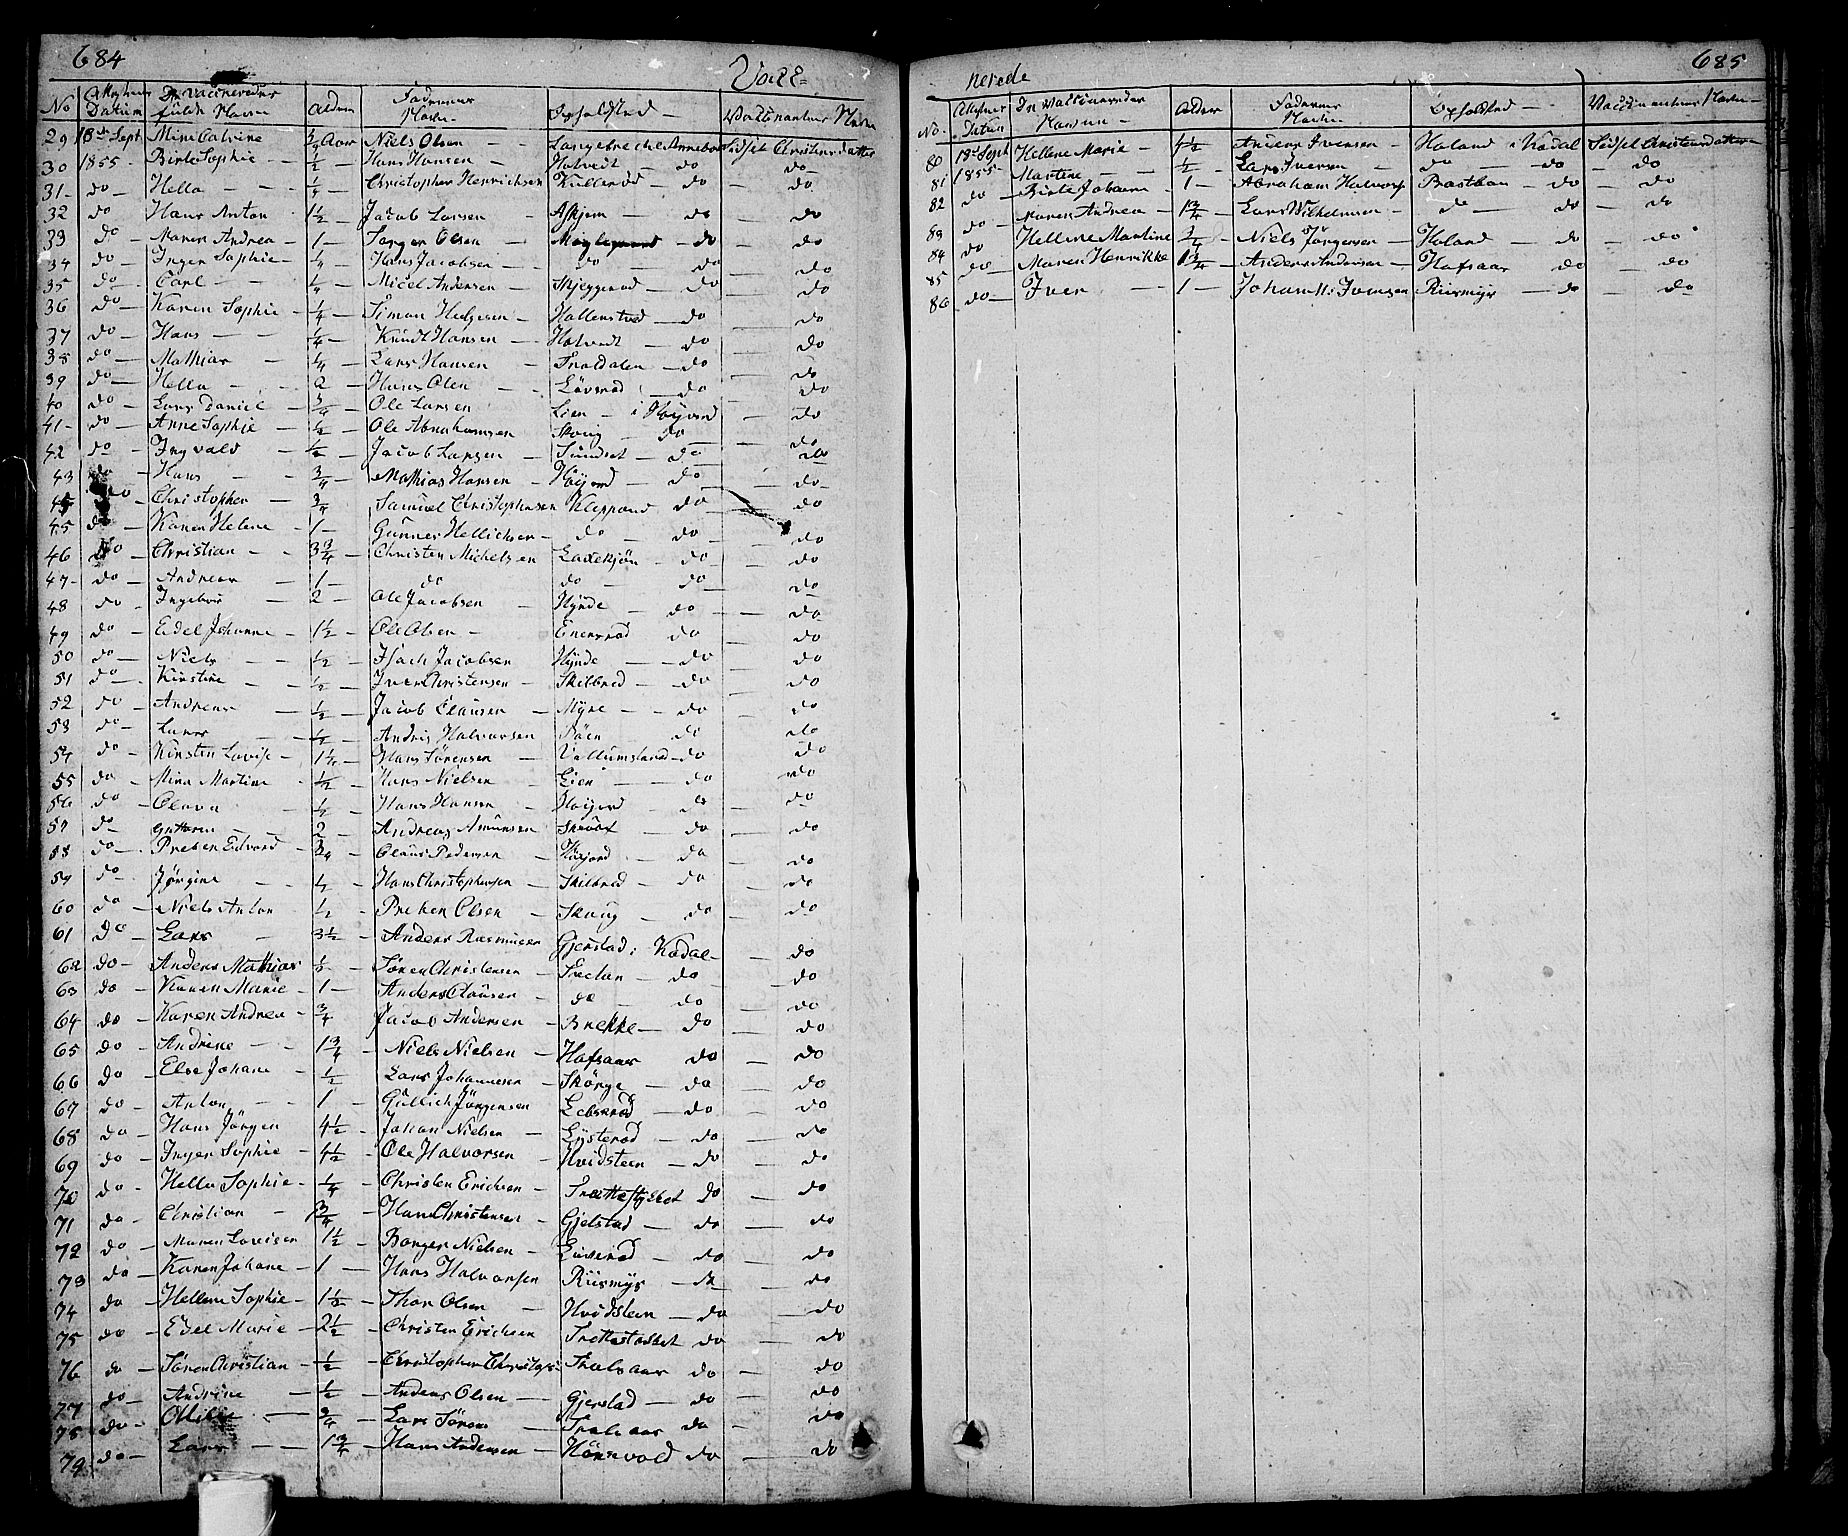 684
Vacc-
No Attestens Datum De Vaccineredes fulde Navn Alder Faderens Navn Opholdsted Vaccinanteus Navn
29 18de Sept. Mine Catrine 3/4 Aar Niels Olsen Langebrekke Annebo Sidsel Christensdatter
30 1855 Birte Sophie 1/2 Hans Hansen Holvedt do do
31 do Hella 1/4 Christopher Henrichsen Kullerød do do
32 do Hans Anton 1 1/2 Jacob Larsen Askjem do do
33 do Maren Andrea 1 Jørger Olsen do do
34 do Inger Sophie 1/4 Hans Jacobsen do do do
35 do Carl 1/4 Micel Andersen Skjeggerød do do
36 do Karen Sophie 1/4 Simon Helgesen Hallenstvedt do do
37 do Hans 1/4 Knudt Hansen Holvedt do do
38 do Mathias 1/4 Lars Hansen Traldalen do do
39 do Hella 2 Hans Olsen Løvsrød do do
40 do Lars Daniel 3/4 Ole Larsen Lien i Høijord do
41 do Anne Sophie 1/2 Ole Abrahamsen Skoug do do
42 do Ingvald 1/2 Jacob Larsen Sundset do do
43 do Hans 3/4 Mathias Hansen Høijord do do
44 do Christopher 3/4 Samuel Christophersen Kleppand do do
45 do Karen Helene 1 Gunner Hellichsen do do do
46 do Christian 3 3/4 Christen Michelsen Ladekjön do do
47 do Andreas 1 do do do do
48 do Ingebor 2 Ole Jacobsen Hynde do do
49 do Edel Johanne 1 1/2 Ole Olsen Enersrød do do
50 do Niels 1/2 Isach Jacobsen Hynde do do
51 do Kirstine 1/2 Iver Christensen Skilbred do do
52 do Andreas 1/2 Jacob Clausen Myre do do
53 do Lars 1/2 Andris Halvorsen Döen do do
54 do Kirsten Lovise 1 1/2 Hans Sörensen Vellumsland do do
55 do Mina Martine 1/2 Hans Nielsen Lien do do
56 do Olava 1/2 Hans Hansen Høijord do do
57 do Guttorm 2 Andreas Amunsen do do
58 do Preben Edvard 3/4 Claus Pedersen Høijord do do
59 do Jørgine 1/2 Hans Christophersen Skilbred do do
60 do Niels Anton 1/2 Preben Olsen Skoug do do
61 do Lars 3 1/2 Anders Rasmusen Gjerstad i Kodal do
62 do Anders Mathias 1/2 Søren Christensen Trellan do do
63 do Karen Marie 1 Anders Clausen do do do
64 do Karen Andrea 3/4 Jacob Andersen Brekke do do
65 do Andrine 1 3/4 Niels Nielsen Hafsaas do do
66 do Else Johane 1/2 Lars Johannesen Skörge do do
67 do Anton 1 Gullich Jørgensen Lebsrød do do
68 do Hans Jörgen 4 1/2 Johan Nielsen Lysterød do do
69 do Inger Sophie 4 1/2 Ole Halvorsen Hvidsteen do do
70 do Hella Sophie 1/4 Christen Erichsen Trættestykket do do
71 do Christian 3/4 Hans Christensen Gjelstad do do
72 do Maren Lovisen 1 1/2 Borger Nielsen Luverød do do
73 do Karen Johane 1 Hans Halvorsen Riismyr do do
74 do Hellene Sophie 1 1/2 Thor Olsen Hvidsteen do do
75 do Edel Marie 2 1/2 Christen Erichsen Trettestøkket do do
76 do Sören Christian 1/2 Christopher Christophs Tralsaas do do
77 do Andrine 1/2 Anders Olsen Gjerstad do do
78 do Otilie 3/4 Lars Sörens Tralsaas do do
79 do Lars 1 3/4 Hans Andersen Hörsevold do do
685
nerede
No. Attestens Datum De Vaccineredes Navn Alder Faderens Navn Opholdsted Vaccinanteus Navn
80 18de Sept Hellene Marie 4 1/2 Anders Iversen Holand i Kodal Sidsel Christensdatter
81 1855 Martine 1/2 Lars Iversen do do do
82 do Birte Johanne 1 Abraham Halvors Bastban do do
83 do Maren Andrea 1 3/4 Lars Wilhelmsen do do do
84 do Hellene Martine 3/4 Niels Jørgensen Holand do do
85 do Maren Henrikke 1 3/4 Anders Andersen Hafsaas do do
86 do Iver 1 Johan Ms Ivensen Riismyr do do